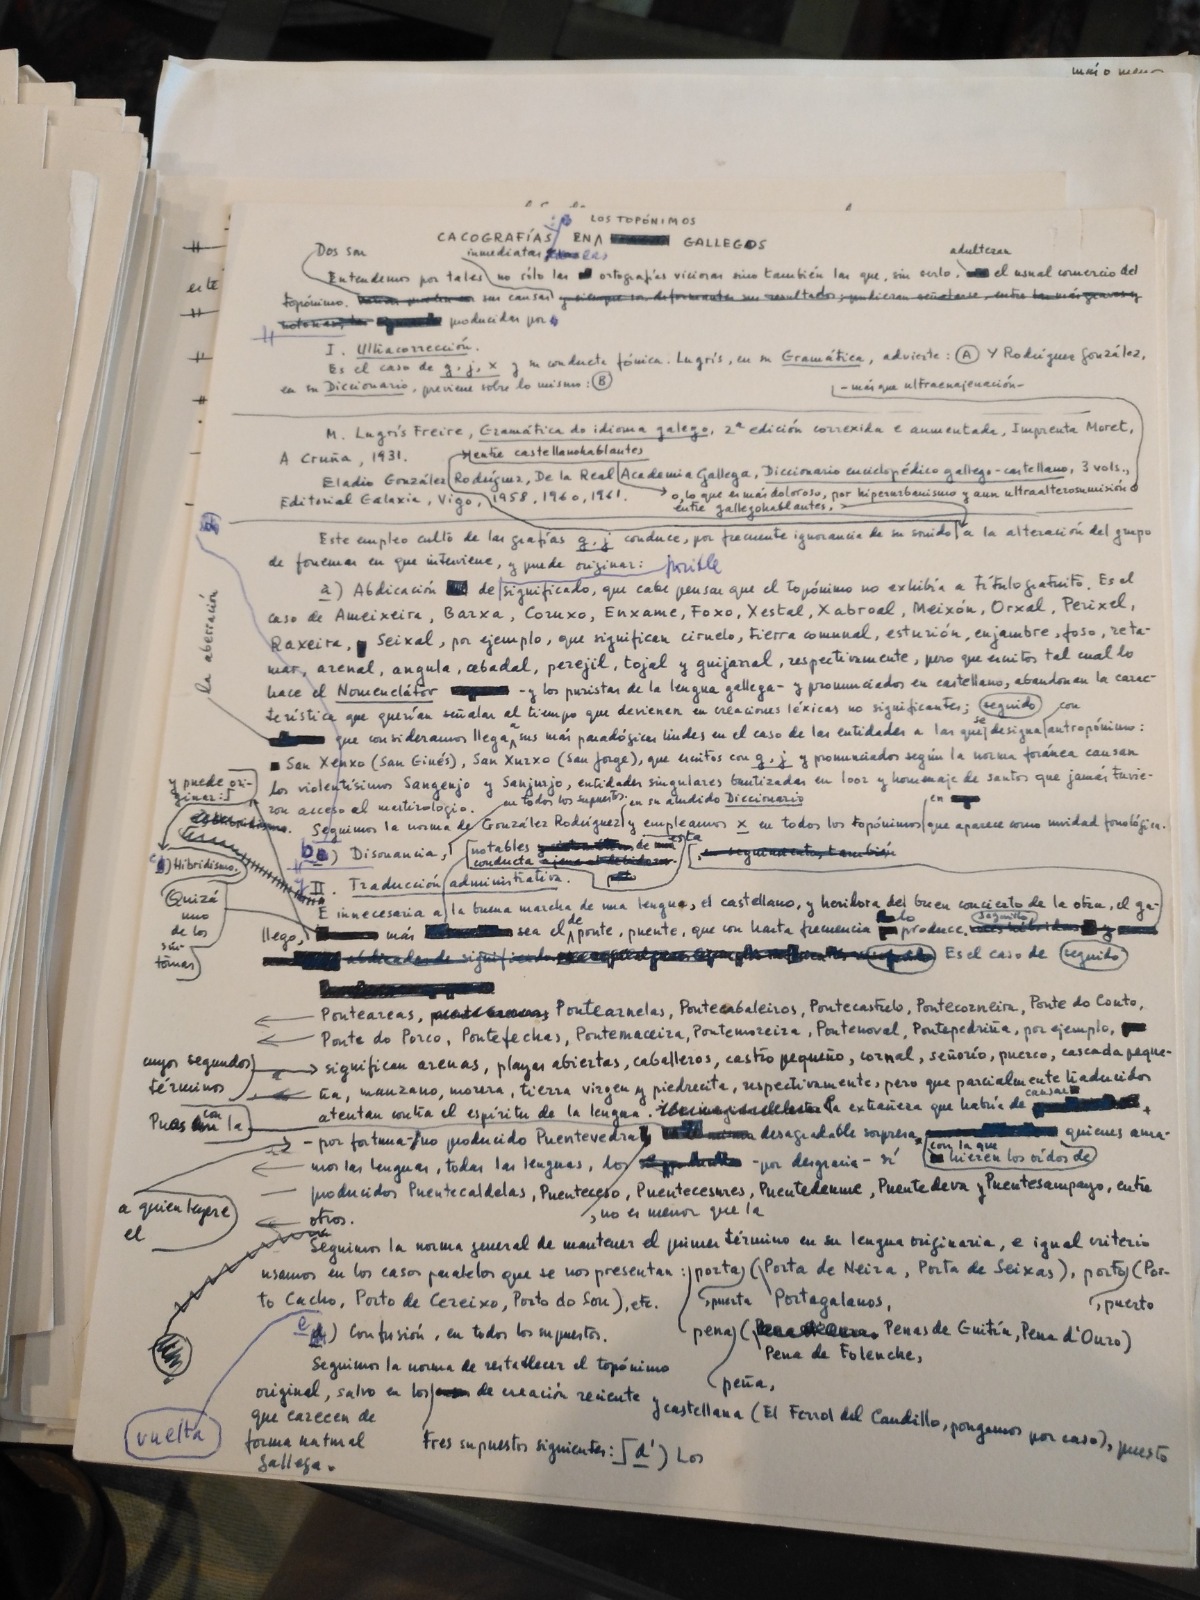 más o menos
LOS TOPÓNIMOS
CACOGRAFÍAS EN GALLEGOS
Dos son inmediatas las adulteran
Entendemos por tales no sólo las ortografías viciosas sino también las que, sin serlo, el usual comercio del
topónimo. sus causas y siempre so deformantes sus resultados; pudieran señalarse, entre las más graves y
notorias, las producidas por
este
I. Ultracorrección.
Es el caso de g, j, x y su conducta fónica. Lugrís, en su Gramática, advierte: (A) Y Rodríguez González,
en su Diccionario, previene sobre lo mismo: (B)
-más que ultraenajenación-
M. Lugrís Freire, Gramática do idioma galego, 2ª edición correxida e aumentada, Imprenta Moret,
A Cruña, 1931.
entre castellanohablantes
Eladio González Rodríguez, De la Real Academia Gallega, Diccionario enciclopédico gallego-castellano, 3 vols.,
Editorial Galaxia, Vigo, 1958, 1960, 1961.
o, lo que es más doloroso, por hiperurbanismo y aun ultraalterosumisión
entre gallegohablantes,
Este empleo culto de las grafías g, j conduce, por frecuente ignorancia de su sonido a la alteración del grupo
de fonemas en que interviene, y puede originar: posible
a) Abdicación de significado, que cabe pensar que el topónimo no exhibía a título gratuito. Es el
caso de Ameixeira, Barxa, Coruxo, Enxame, Foxo, Xestal, Xabroal, Meixón, Orxal, Perixel,
Raxeira, Seixal, por ejemplo, que significan ciruelo, tierra comunal, esturión, enjambre, foso, reta-
mar, arenal, angula, cebadal, perejil, tojal y guijarral, respectivamente, pero que escritos tal cual lo
hace el Nomenclátor -y los puristas de la lengua gallega- y pronunciados en castellano, abandonan la carac-
terística que querían señalar al tiempo que devienen en creaciones léxicas no significantes; seguido con
la aberración
que consideramos llega a sus más paradógicas lindes en el caso de las entidades a las que se designa antropónimo:
San Xenxo (San Ginés), San Xurxo (San Jorge), que escritos con g, j y pronunciados según la norma foránea causan
los violentísimos Sangenjo y Sanjurjo, entidades singulares bautizadas en loor y homenaje de santos que jamás tuvie-
ron acceso al martirologio.
y puede ori-
ginar:
en todos los supuestos en su aludido Diccionario en
Seguimos la norma de González Rodríguez y empleamos x en todos los topónimos que aparece como unidad fonológica.
b) Disonancia, notables de esta
conducta ajena al debido
en seguimiento, también
c) Hibridismo.
Quizá
uno
de los
sín-
tomas
II. Traducción administrativa.
E innecesaria a la buena marcha de una lengua, el castellano, y heridora del buen concierto de la otra, el ga-
llego, más sea el de ponte, puente, que con harta frecuencia lo produce, seguido
Es el caso de seguido
Ponteareas, Pontearnelas, Pontecabaleiros, Pontecastrelo, Pontecorneira, Ponte do Couto,
Ponte do Porco, Pontefechas, Pontemaceira, Pontemoreira, Pontenoval, Pontepedriña, por ejemplo,
cuyos segundos
términos
significan arenas, playas abiertas, caballeros, castro pequeño, cornal, señorío, puerco, cascada peque-
ña, manzano, morera, tierra virgen y piedrecita, respectivamente, pero que parcialmente traducidos
atentan contra el espíritu de la lengua. la extrañeza que habría de causar
Pues con la
- por fortuna- no producido Puentevedra desagradable sorpresa, quienes ama-
con la que
hieren los oídos de
mos las lenguas, todas las lenguas, los -por desgracia- sí
producidos Puentecaldelas, Puenteceso, Puentecesures, Puentedeume, Puentedeva y Puentesampayo, entre
otros. , no es menor que la
a quien leyere
el
Seguimos la norma general de mantener el primer término en su lengua originaria, e igual criterio
usamos en los casos paralelos que se nos presentan: porta, puerta (Porta de Neira, Porta de Seixas), porto, puerto (Por-
to Cacho, Porto de Cereixo, Porto do Son), etc. Portagalanos,
pena, peña, (Penas de Guitín, Pena d'Ouro)
Pena de Folenche,
e) Confusión, en todos los supuestos.
Seguimos la norma de restablecer el topónimo
original, salvo en los de creación reciente y castellana (El Ferrol del Caudillo, pongamos por caso), puesto
que carecen de
forma natural
gallega.
tres supuestos siguientes: d') Los
vuelta